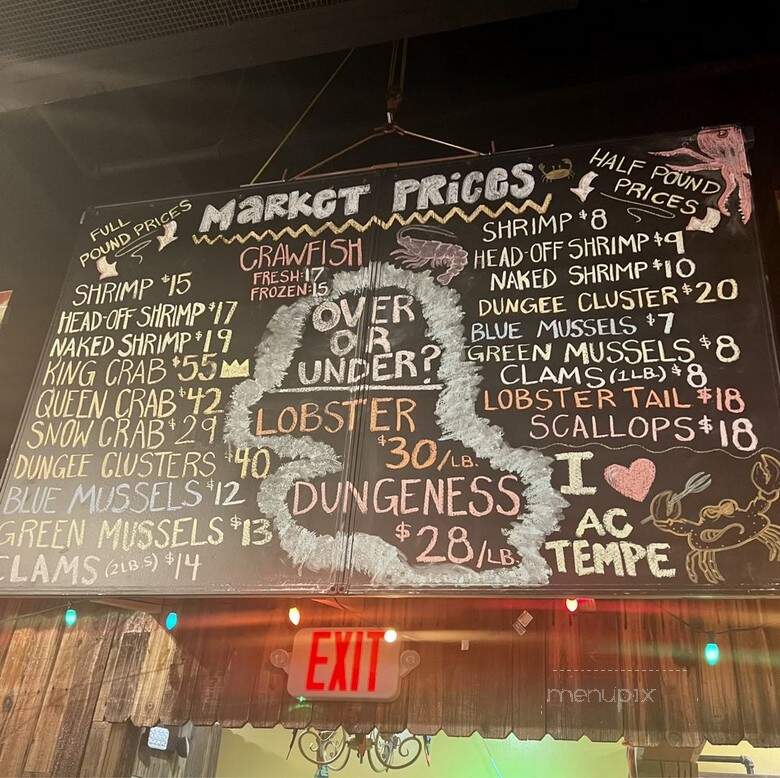 MARKET PRICES
FULL
POUND PRICES
SHRIMP $15
HEAD-OFF SHRIMP $17
NAKED SHRIMP $19
KING CRAB $55
QUEEN CRAB $42
SNOW CRAB $29
DUNGEE CLUSTERS $40
BLUE MUSSELS $12
GREEN MUSSELS $13
CLAMS (2LB.S) $14
CRAWFISH
FRESH: 17
FROZEN: 15
OVER
OR
UNDER?
LOBSTER
$30/LB.
DUNGENESS
$28/LB.
HALF POUND
PRICES
SHRIMP $8
HEAD-OFF SHRIMP $9
NAKED SHRIMP $10
DUNGEE CLUSTER $20
BLUE MUSSELS $7
GREEN MUSSELS $8
CLAMS (1LB.) $8
LOBSTER TAIL $18
SCALLOPS $18
I ♥
AC
TEMPE
EXIT
menupix